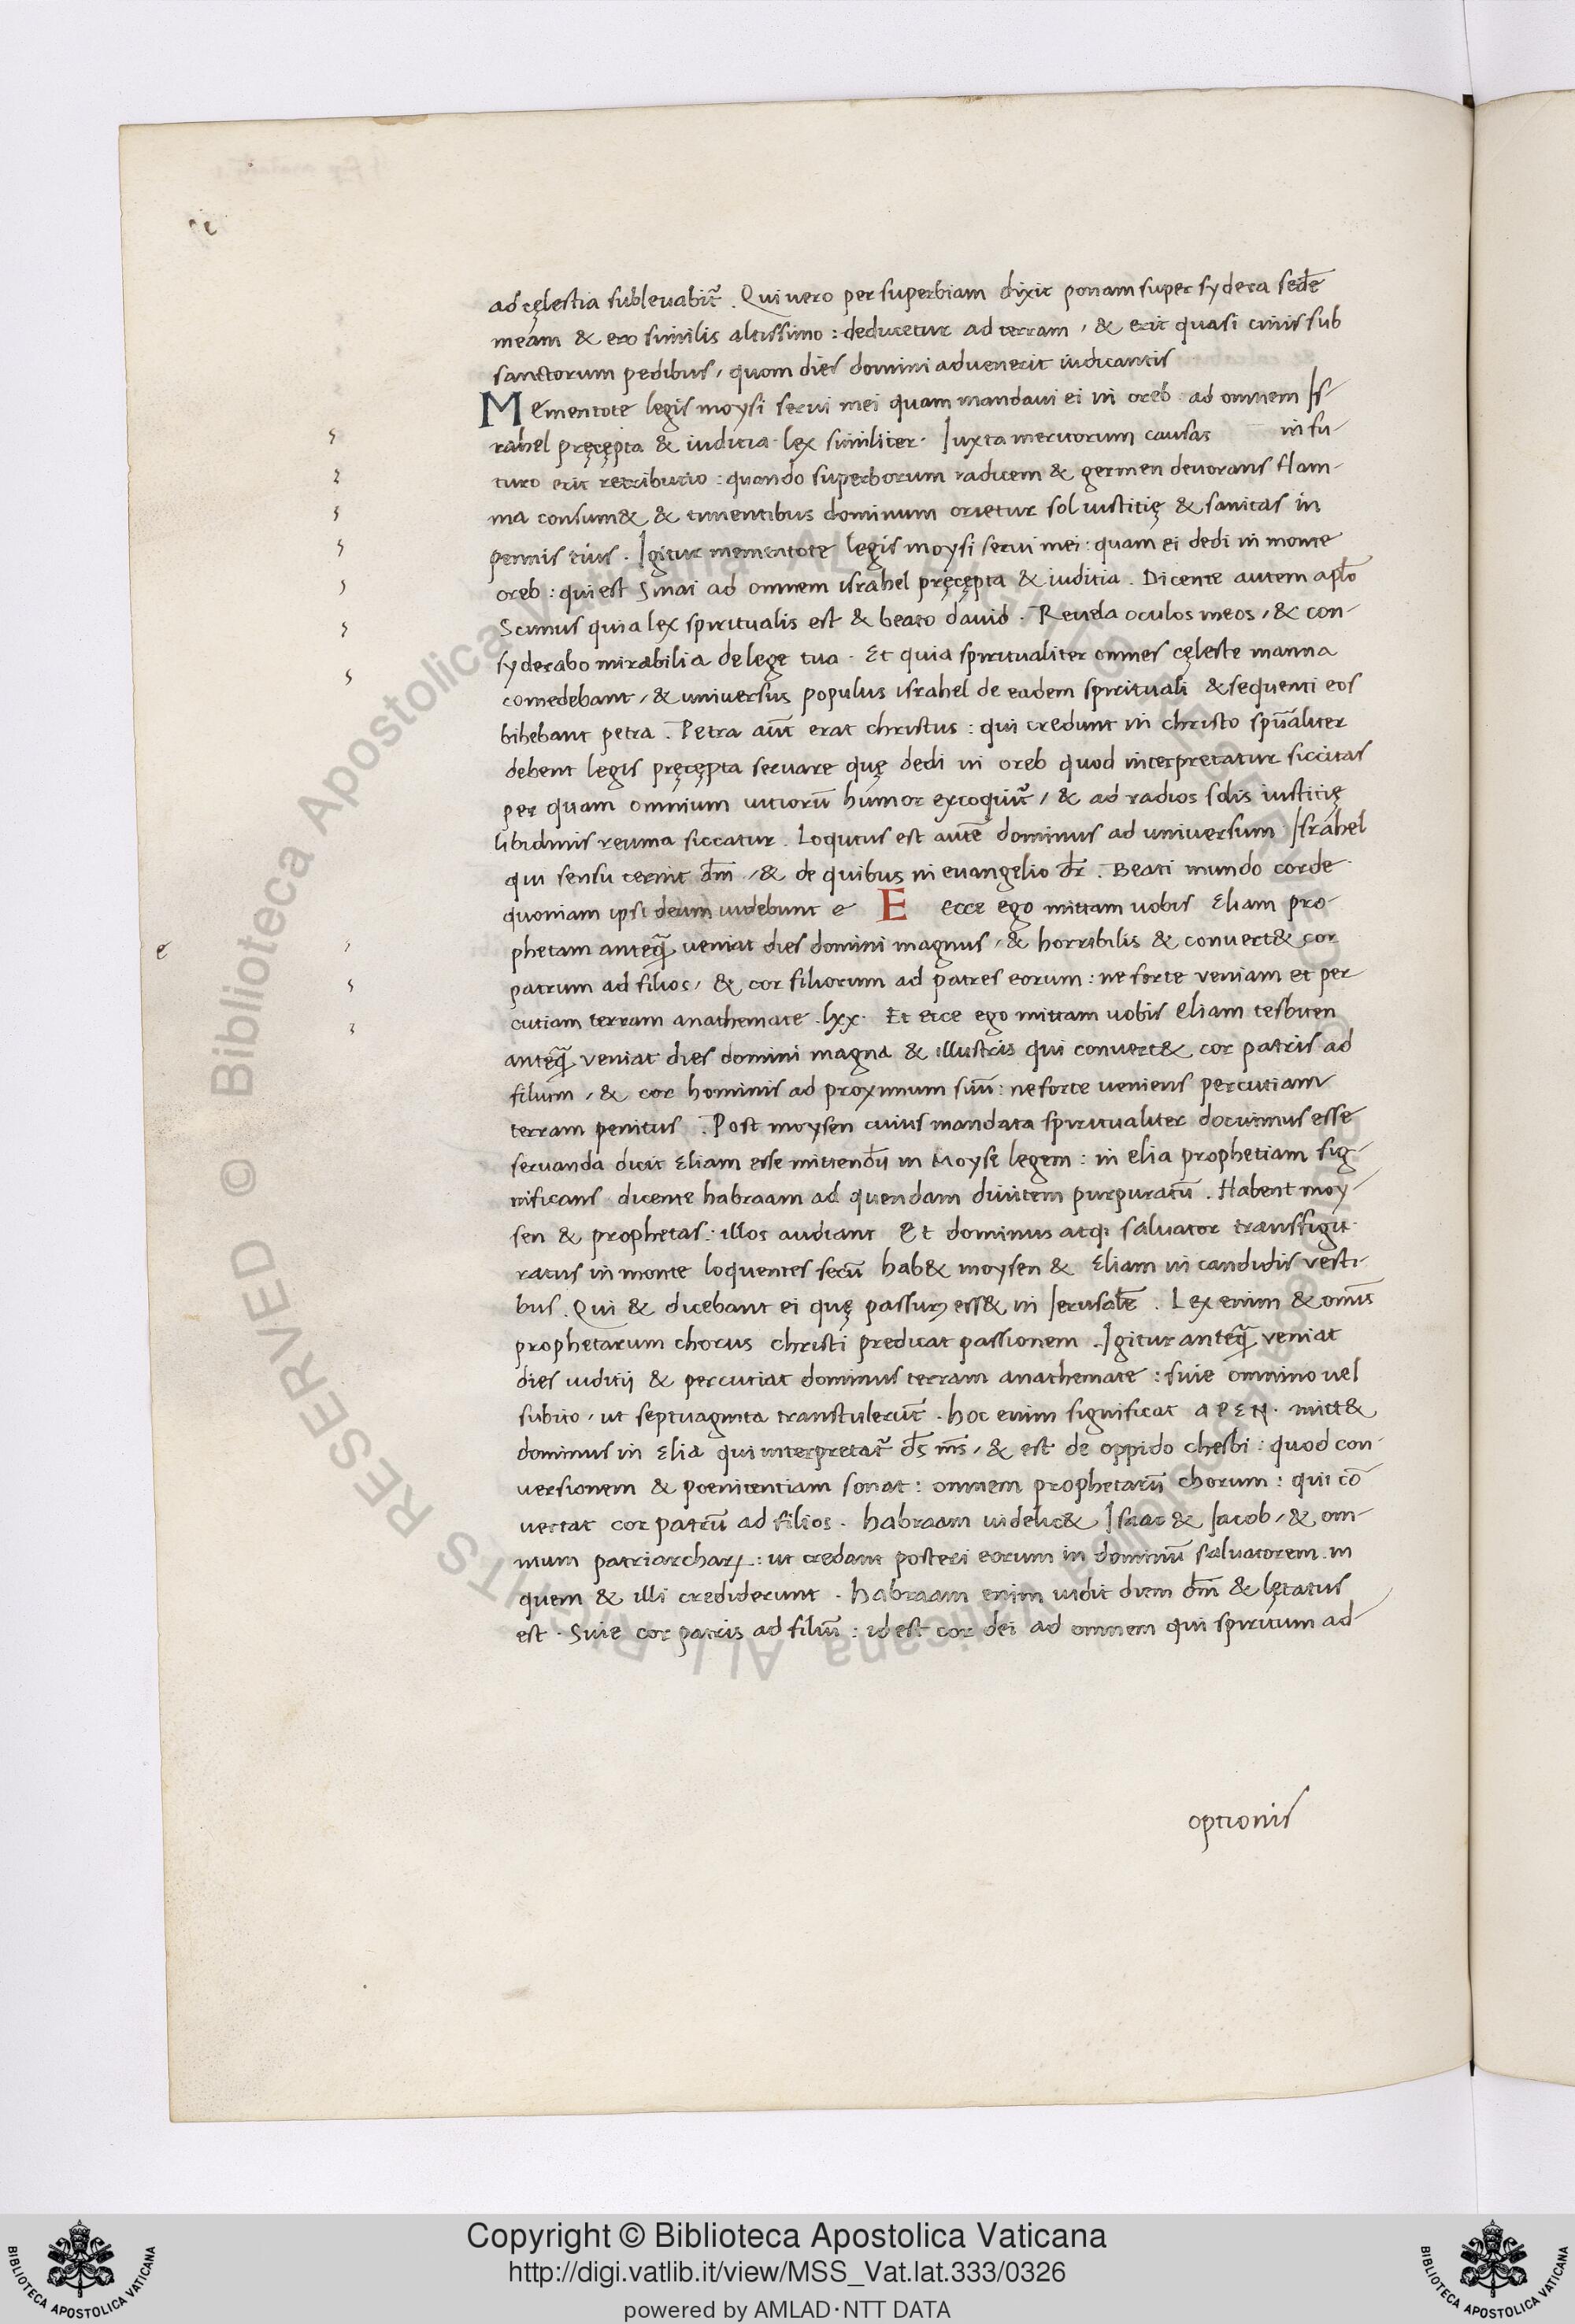 ad cęlestia sublevabit᷒. Qui uero per superbiam dixit ponam super sydera sedē
meam & ero similis altissimo : deducetur ad terram, & erit quasi cinis sub
sanctorum pedibus, quom dies domini advenerit iudicantis
Mementote legis moysi serui mei quam mandavi ei in oreb ad omnem Is-
rahel pręcępta & iudicia. lex similiter. Iuxta meritorum causas in fu-
turo erit retributio : quando superborum radicem & germen devorans flam-
ma consum& & timentibus dominum orietur sol iustitię & sanitas in
pennis eius. Igitur mementote legis moysi serui mei : quam ei dedi in monte
oreb : qui est Sinai ad omnem israhel pręcępta & iuditia. Dicente autem apl̄o
Scimus quia lex spiritualis est & beato david. Reuela oculos meos, & con-
syderabo mirabilia de lege tua. Et quia spiritualiter omnes cęleste manna
comedebant, & universus populus israhel de eadem spirituali & sequenti eos
bibebant petra. Petra aūt erat christus : qui credunt in christo spūaliter
debent legis pręcępta servare quę dedi in oreb quod interpretatur siccitas
per quam omnium uitiorū humor excoquit᷒, & ad radios solis iustitię
libidinis reuma siccatur. Loqutus est autē dominus ad universum Israhel
qui sensu cernit dm̄, & de quibus in evangelio dr̄. Beati mundo corde
quoniam ipsi deum uidebunt e E ecce ego mittam uobis Eliam pro-
phetam anteq̄ veniat dies domini magnus, & horribilis & convert& cor
e
patrum ad filios, & cor filiorum ad patres eorum : ne forte veniam et per
cutiam terram anathemate. lxx. Et ecce ego mittam uobis eliam tesbiten
anteq̄ veniat dies domini magna & illustris qui convert& cor patris ad
filium, & cor hominis ad proximum suū : ne forte ueniens percutiam
terram penitus. Post moysen cuius mandata spiritualiter docuimus esse
servanda dicit Eliam esse mittendū in Moyse legem : in elia prophetiam sig-
nificans dicente habraam ad quendam divitem purpuratū. Habent moy-
sen & prophetas : illos audiant Et dominus atq; salvator transfigu-
ratus in monte loquentes secū hab& moysen & Eliam in candidis vesti-
bus. Qui & dicebant ei quę passurꝰ ess& in Jerusalē. Lex enim & omīs
prophetarum chorus christi predicat passionem. Igitur anteq̄ veniat
dies iuditij & percutiat dominus terram anathemate : siue omnino uel
subito, ut septuaginta transtulerūt. hoc enim significat APEN. mitt&
dominus in Elia qui interpretat᷒ ds̄ ms̄, & est de oppido thesbi : quod con-
versionem & poenitentiam sonat : omnem prophetarū chorum : qui cō
vertat cor patrū ad filios. habraam uidelic& Isaac & Jacob, & om-
nium patriarcharꝝ : ut credant posteri eorum in dominū salvatorem in
quem & illi crediderunt. habraam enim uidit diem dm̄ & lętatus
est. Sive cor patris ad filiū : id est cor dei ad omnem qui spiritum ad-
optionis
Copyright © Biblioteca Apostolica Vaticana
http://digi.vatlib.it/view/MSS_Vat.lat.333/0326
powered by AMLAD·NTT DATA